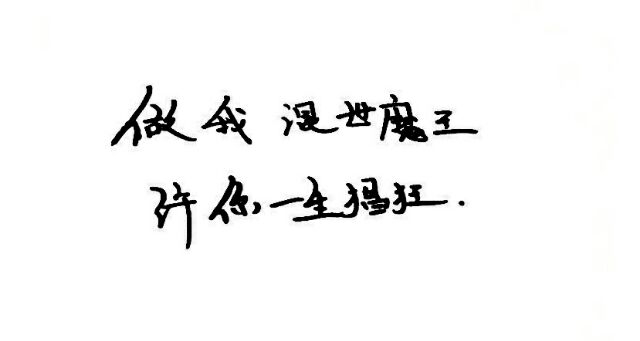 做我混世魔王
许你一生猖狂.